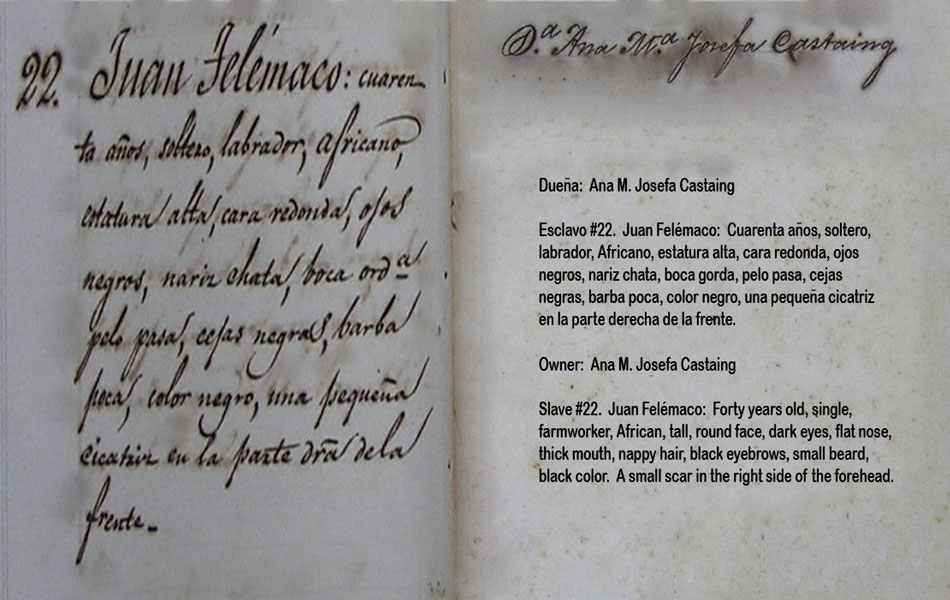 22. Juan Felémaco: cuaren
ta años, soltero, labrador, africano,
estatura alta, cara redonda, ojos
negros, nariz chata, boca ord.ª
pelo pasa, cejas negras, barba
poca, color negro, una pequeña
cicatriz en la parte dr̃a de la
frente.
D.ª Ana M.ª Josefa Castaing
Dueña: Ana M. Josefa Castaing
Esclavo #22. Juan Felémaco: Cuarenta años, soltero,
labrador, Africano, estatura alta, cara redonda, ojos
negros, nariz chata, boca gorda, pelo pasa, cejas
negras, barba poca, color negro, una pequeña cicatriz
en la parte derecha de la frente.
Owner: Ana M. Josefa Castaing
Slave #22. Juan Felémaco: Forty years old, single,
farmworker, African, tall, round face, dark eyes, flat nose,
thick mouth, nappy hair, black eyebrows, small beard,
black color. A small scar in the right side of the forehead.